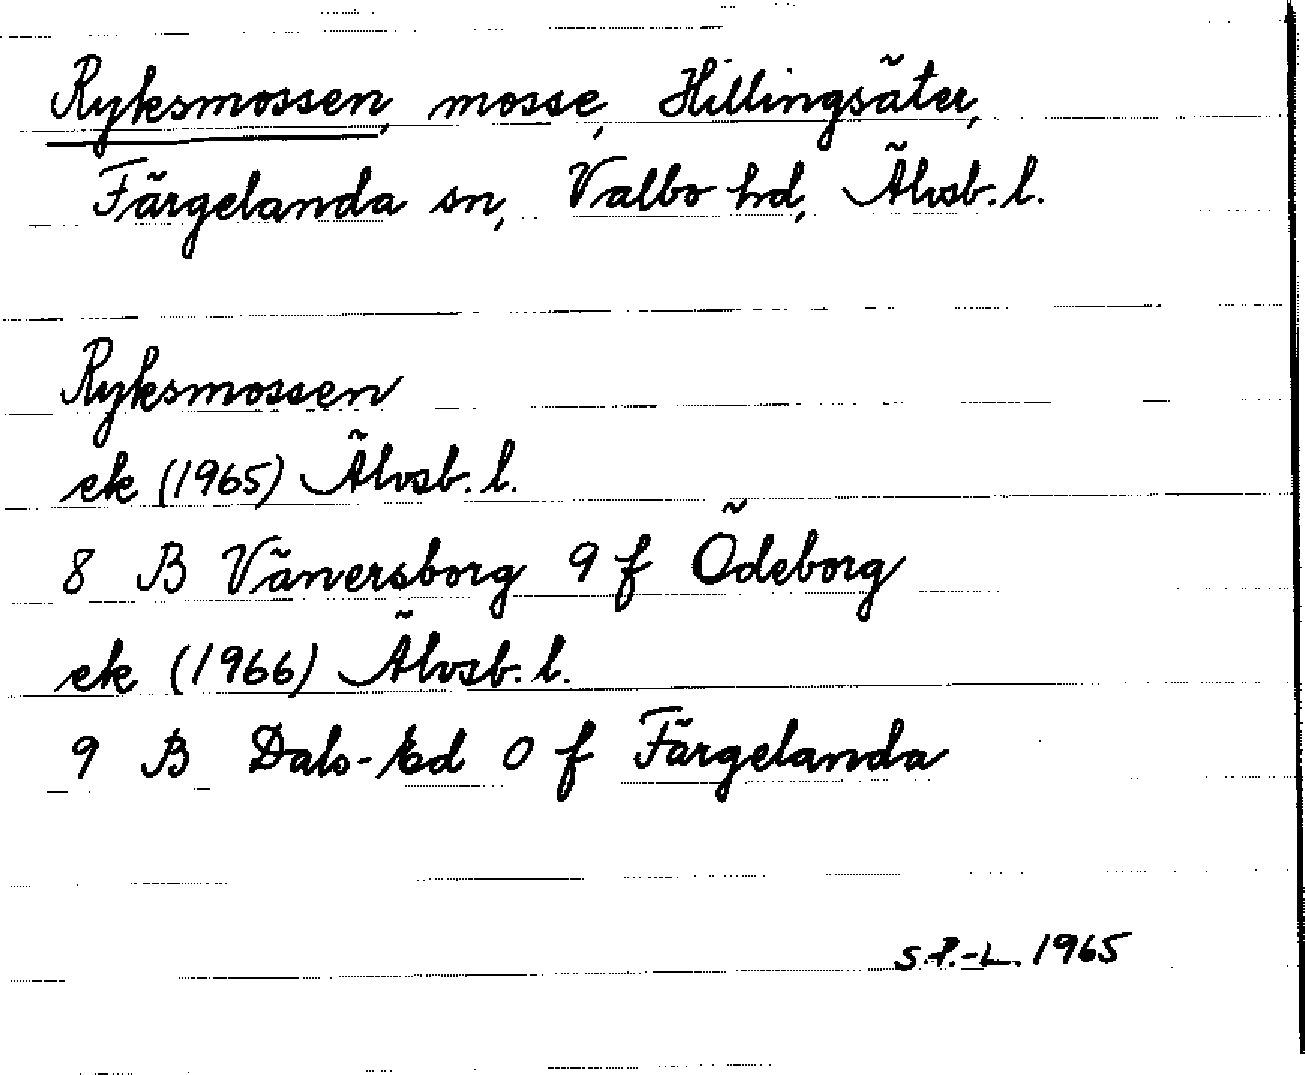 Ryksmossen, mosse, Hillingsäter,
Färgelanda sn, Valbo hd, Älvsb. l.
Ryksmossen
ek (1965) Älvsb. l.
8 B Vänersborg 9 f Ödeborg
ek (1966) Älvsb. l.
9 B Dals-Ed 0 f Färgelanda
S.P.-L. 1965